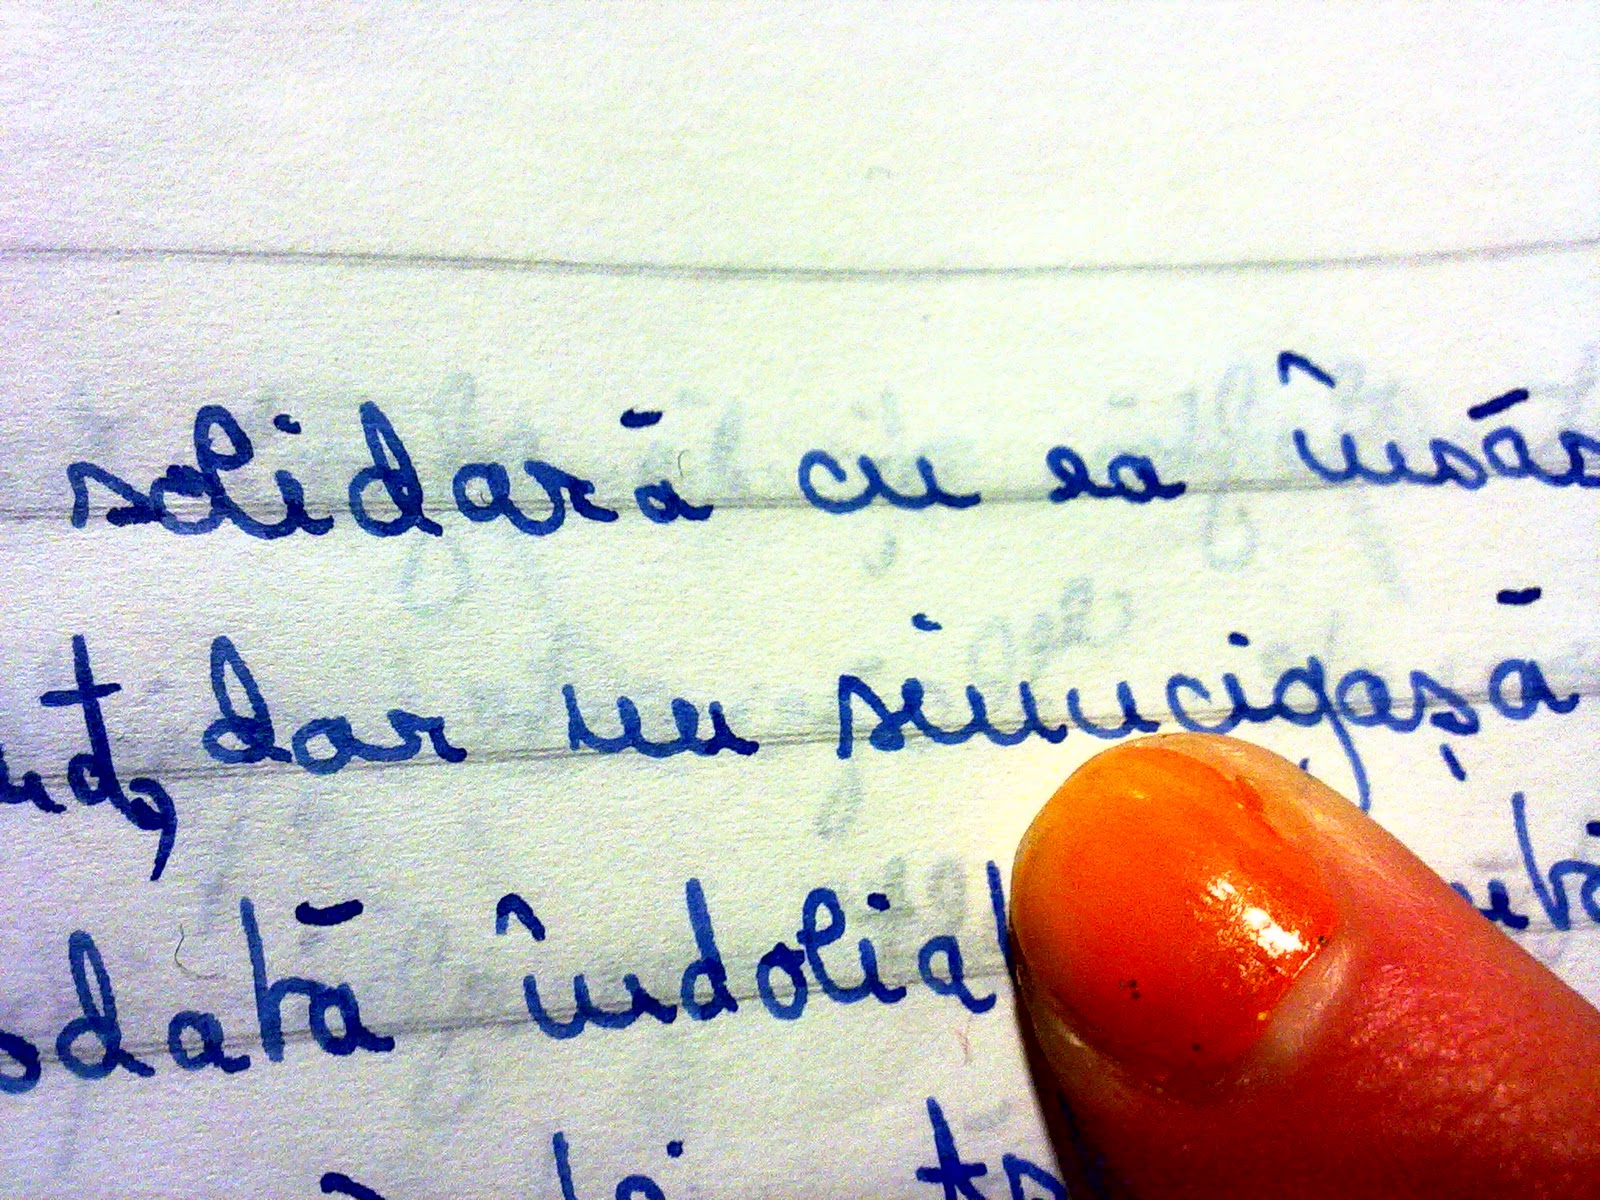 solidară cu ea însăș
dar nu sinucigașă
odată îndoliat